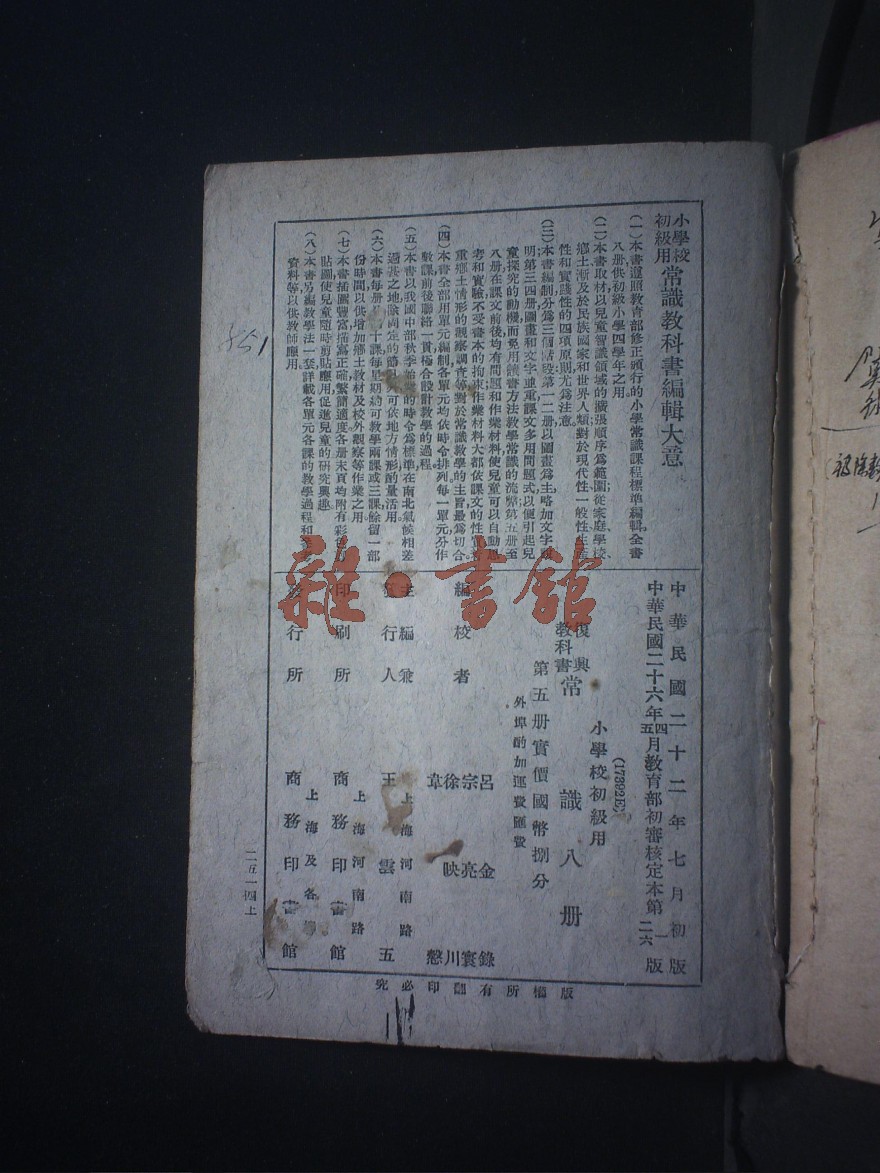 小學校
初級用
常識教科書編輯大意
(一)本書遵照教育部修正頒行的小學常識課程標準編輯全書
八册供初級小學四學年之用。
(二)本書取材以兒童智識領域的擴張順序爲範圍從家庭學校
鄉土漸及於民族國家和世界人類對於現代性一般性生產
性和實踐性的四項原則尤爲注意
(三)本書編制分爲三個階段第一二册以圖畫爲主略加文字
明第三四册圖畫和文字並重課文多用問題式以便引起兒
童探究的動機而免用讀書方法教學常識的流弊第五册至
八册在課文前後均有問題和作業材料使兒童可以自動思
考和實驗不受書本的拘束作業材料大都依課文的性質
重鄉土情形的觀察調查等對於常識教學的主旨最爲切合
(四)本書全部用單元編制各單元均依時令排列每一單元分作
數課前後聯絡一貫極合設計教學的過程
(五)本書以我國中部秋季始業的時令爲標準在南北氣候相差
過甚之地除固定的節日外可依地方情形酌量活用。
(六)本書每册 十課每星期約可教學兩課或三課餘留一部
份時間以供增加鄉土教材及校外觀察等作業之用。
(七)本書插圖豐富描寫正確繁簡適度各册末頁均附有彩色
貼圖使兒童隨時剪貼應用促進兒童的研究興趣。
(八)本書另編教學法一套詳載各單元各課的教學過程和
資料等以供教師應用。
中華民國二十二年七月初版
中華民國二十六年五四月教育部初審核定本第一二六版
(17392E)
小學校初級用
復興
教科書
常識八册
第五册實價國幣捌分
外埠酌加運費匯費
編校者
呂金錄
宗亮寰
徐映川
韋 愨
主編兼
發行人
上海河南路
王雲五
印刷所
上海河南路
商務印書館
發行所
上海及各
商務印書館
版權所有翻印必究
二五一四上
851
雜·書館